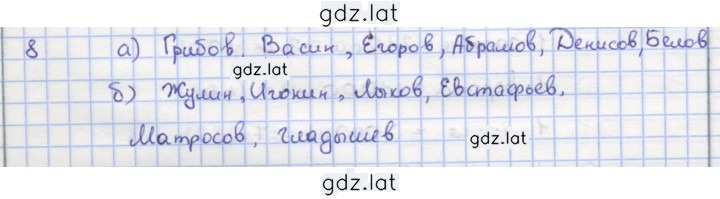 gdz.lat
8 а) Грибов, Васин, Егоров, Абрамов, Денисов, Белов
gdz.lat
б) Жулин, Игонин, Лыков, Евстафьев,
Матросов, Гладышев
gdz.lat
gdz.lat